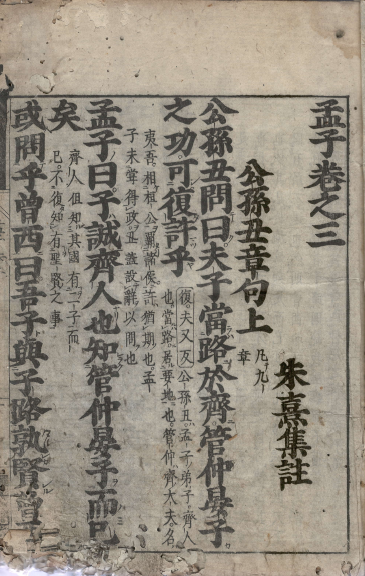 孟子卷之三
朱熹集註
公孫丑章句上
凡九章
公孫丑問曰夫子當路於齊管仲晏子
之功可復許乎
復夫又反公孫丑孟子弟子齊人
也當路居要地也管仲齊大夫名
夷吾相桓公霸諸侯許猶期也孟
子未嘗得政丑蓋設辭以問也
孟子曰子誠齊人也知管仲晏子而已
矣
齊人但知其國有二子而
已不復知有聖賢之事
或問乎曾西曰吾子與子路孰賢曾